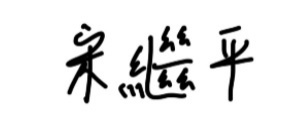 宋繼平